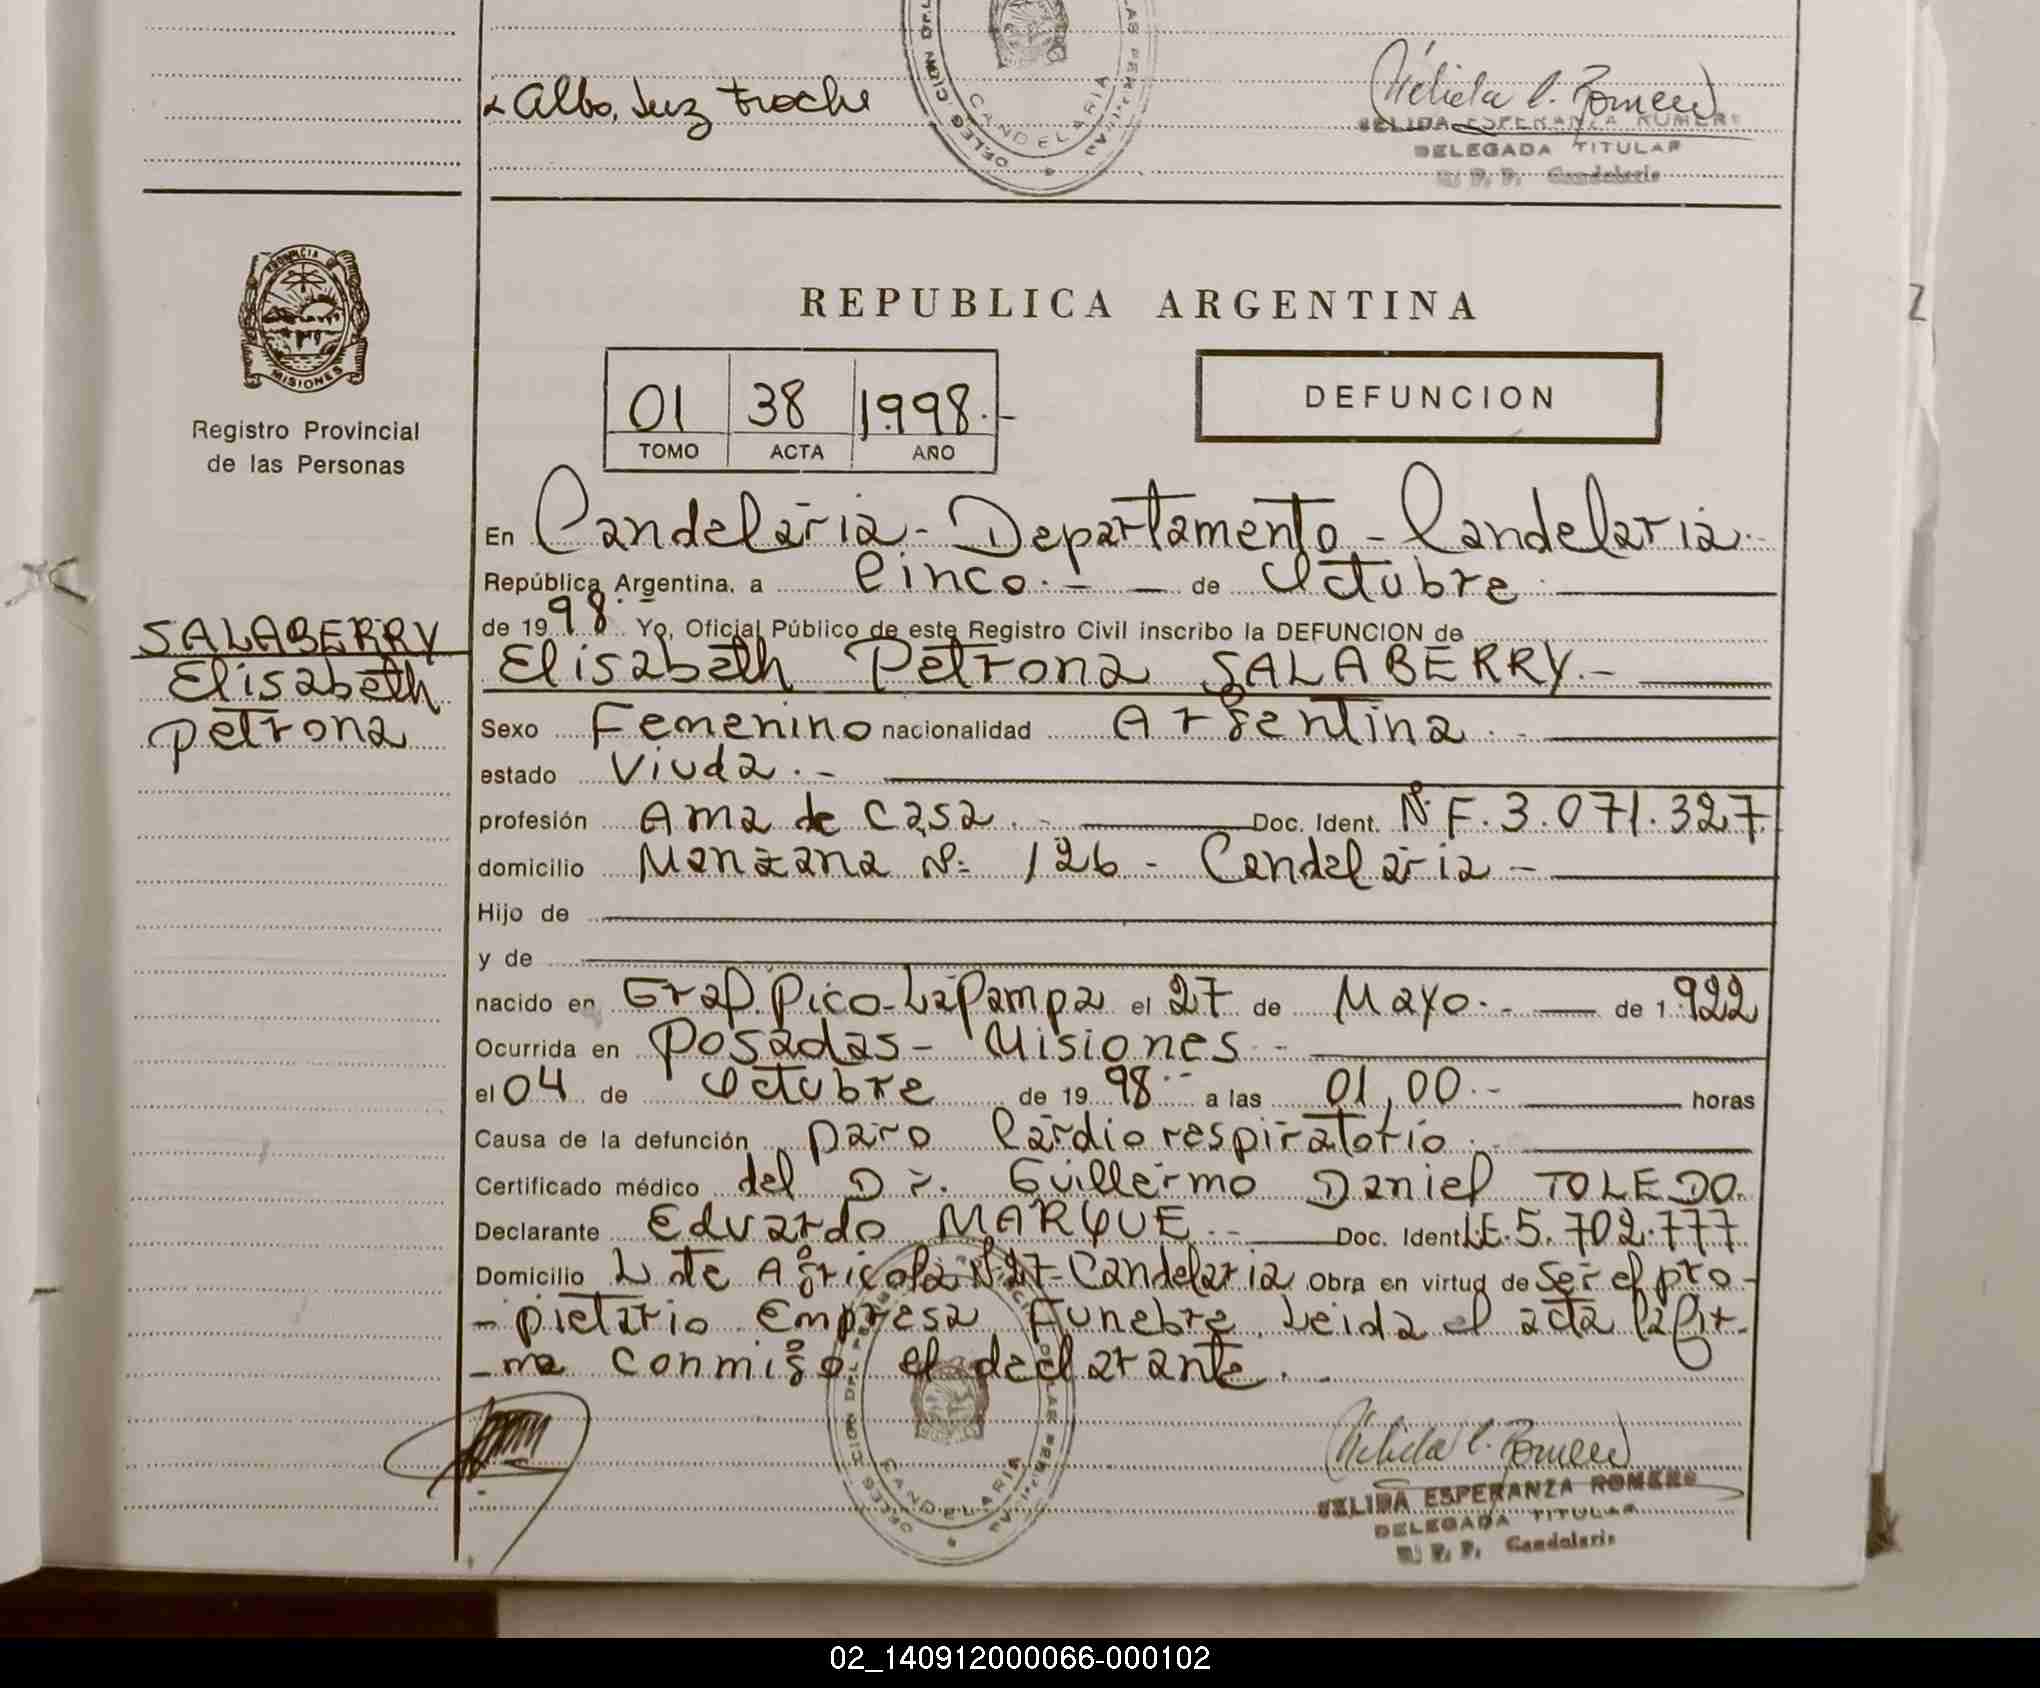 Alba Luz Troche
CANDELARIA
NELIDA ESPERANZA ROMERO
DELEGADA TITULAR
R. P. P. Candelaria
PROVINCIA
MISIONES
Registro Provincial
de las Personas
REPUBLICA ARGENTINA
01 38 1998.-
TOMO ACTA AÑO
DEFUNCION
En Candelaria - Departamento - Candelaria.-
República Argentina, a Cinco.- — de Octubre
de 1998.- Yo, Oficial Público de este Registro Civil inscribo la DEFUNCION de
SALABERRY
Elisabeth
Petrona
Elisabeth Petrona SALABERRY.-
Sexo Femenino nacionalidad Argentina.-
estado Viuda.-
profesión Ama de casa.- Doc. Ident. Nº F. 3.071.327
domicilio Manzana Nº: 126 - Candelaria -
Hijo de
y de
nacido en Gral. Pico - La Pampa el 27 de Mayo.- — de 1.922
Ocurrida en Posadas - Misiones -
el 04 de Octubre de 1998.- a las 01,00.- horas
Causa de la defunción paro Cardiorespiratorio.-
Certificado médico del Dr. Guillermo Daniel TOLEDO.
Declarante Eduardo MARQUE.- Doc. Ident L.E. 5.702.777
Domicilio Lote Agricola Nº 27 - Candelaria Obra en virtud de Ser el pro-
- pietario Empresa Funebre. Leida el acta la fir-
- ma conmigo el declarante.
CANDELARIA
NELIDA ESPERANZA ROMERO
DELEGADA TITULAR
R. P. P. Candelaria
02_140912000066-000102